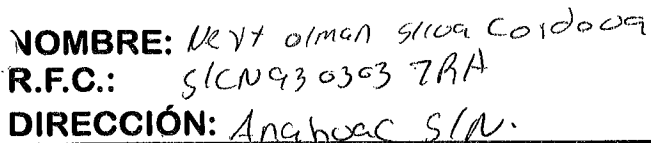 NOMBRE: Neyt olman silva Cordova
R.F.C.: SICN930303 7RA
DIRECCIÓN: Anahuac S/N.